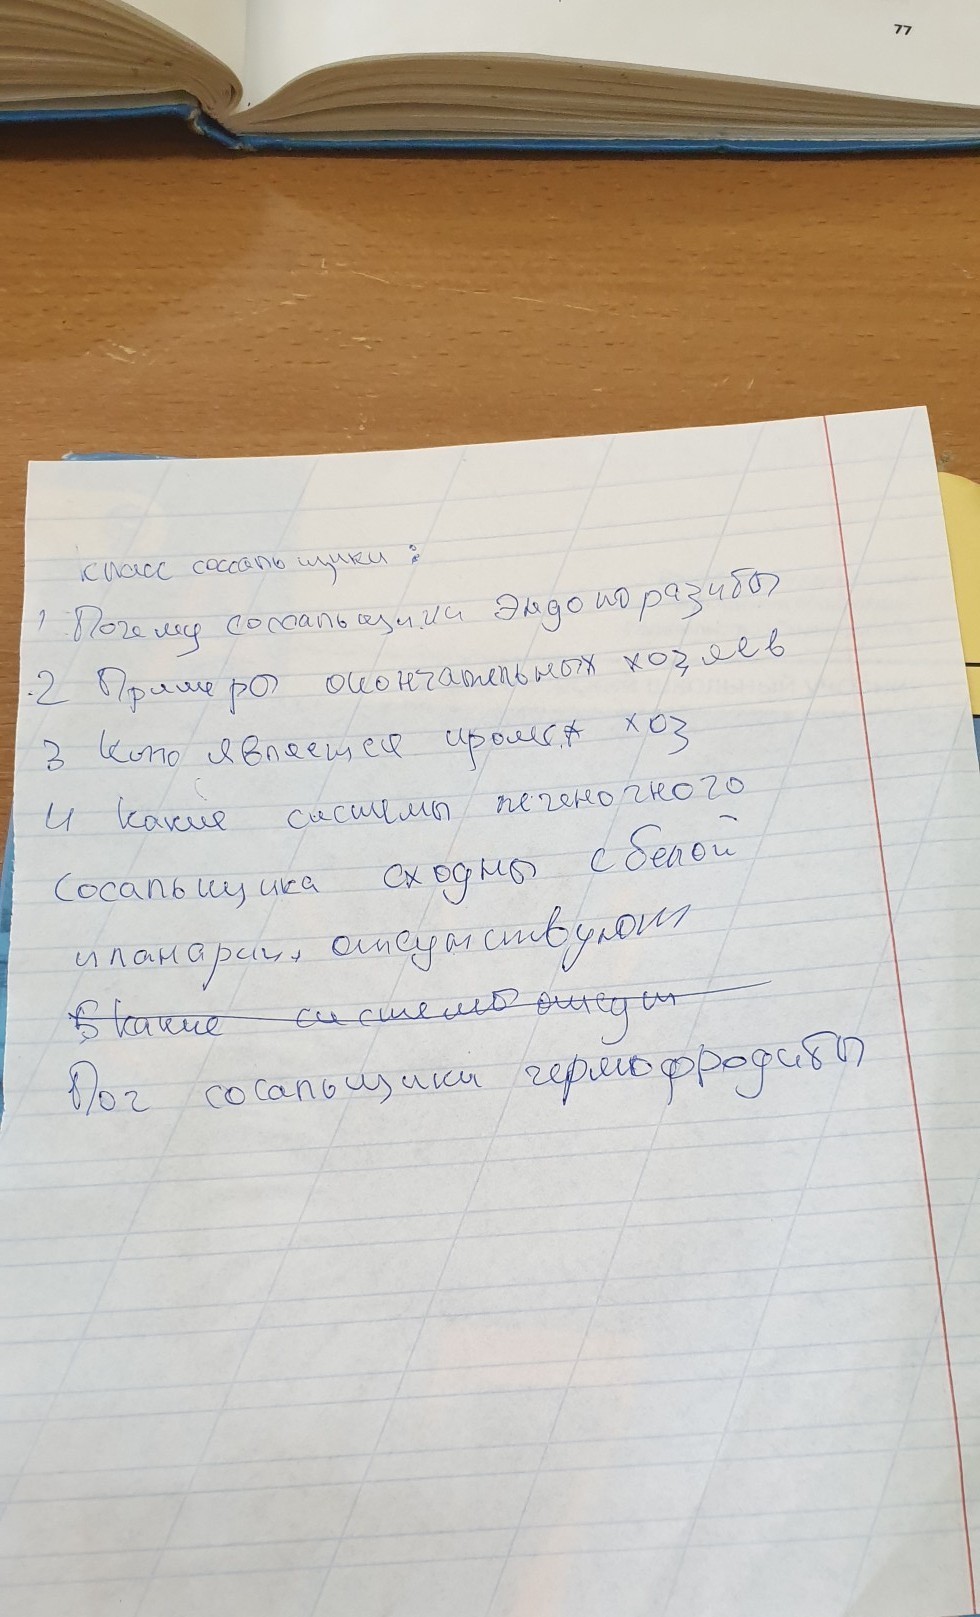 77
класс соссальщики :
1 Почему соссальщики Эндопоразиты
.2 Примеры окончательных хозяев
3 Кто является пром. хоз
4 Какие системы печеночного
сосальщика сходны с белой
планарии, отсутствуют
5 какие системы отсут
Поч сосальщики гермофродиты